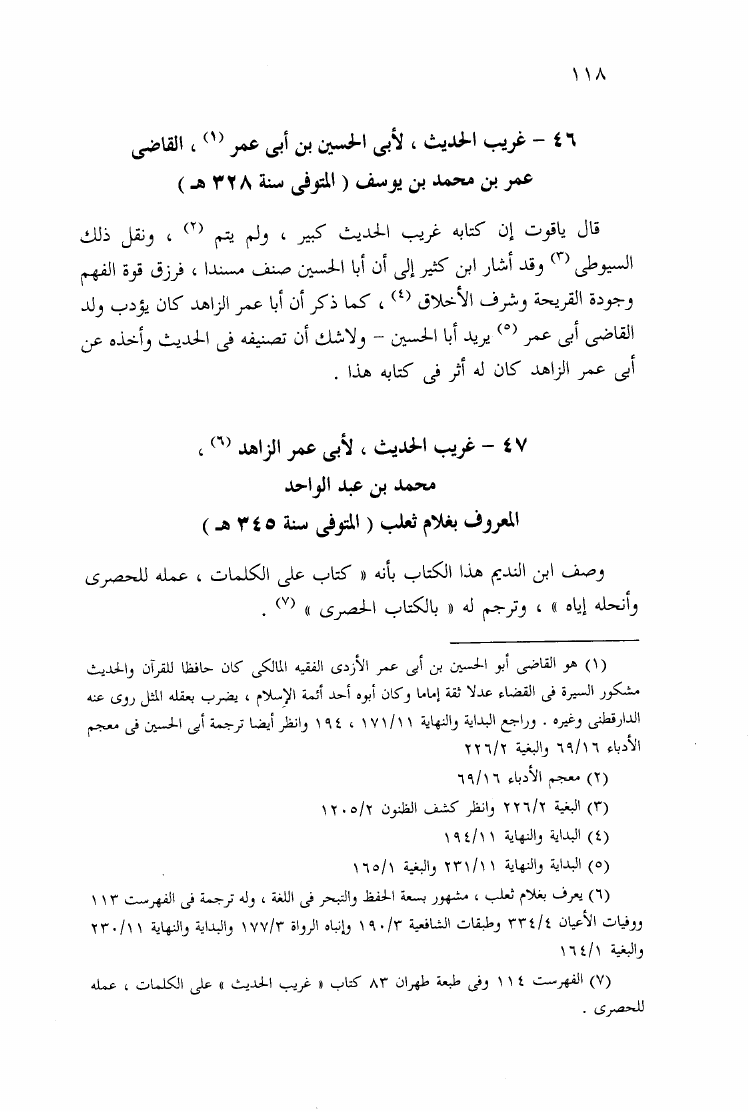 ١١٨
٤٦ – غريب الحديث ، لأبى الحسين بن أبى عمر (١) ، القاضى
عمر بن محمد بن يوسف ( المتوفى سنة ٣٢٨ هـ )
قال ياقوت إن كتابه غريب الحديث كبير ، ولم يتم (٢) ، ونقل ذلك
السيوطى (٣) وقد أشار ابن كثير إلى أن أبا الحسين صنف مسندا ، فرزق قوة الفهم
وجودة القريحة وشرف الأخلاق (٤) ، كما ذكر أن أبا عمر الزاهد كان يؤدب ولد
القاضى أبى عمر (٥) يريد أبا الحسين – ولاشك أن تصنيفه فى الحديث وأخذه عن
أبى عمر الزاهد كان له أثر فى كتابه هذا .
٤٧ – غريب الحديث ، لأبى عمر الزاهد (٦) ،
محمد بن عبد الواحد
المعروف بغلام ثعلب ( المتوفى سنة ٣٤٥ هـ )
وصف ابن النديم هذا الكتاب بأنه « كتاب على الكلمات ، عمله للحصرى
وأنحله إياه » ، وترجم له « بالكتاب الحصرى » (٧) .
(١) هو القاضى أبو الحسين بن أبى عمر الأزدى الفقيه المالكى كان حافظا للقرآن والحديث
مشكور السيرة فى القضاء عدلا ثقة إماما وكان أبوه أحد أئمة الإسلام ، يضرب بعقله المثل روى عنه
الدارقطنى وغيره . وراجع البداية والنهاية ١٧١/١١ ، ١٩٤ وانظر أيضا ترجمة أبى الحسين فى معجم
الأدباء ٦٩/١٦ والبغية ٢٢٦/٢
(٢) معجم الأدباء ٦٩/١٦
(٣) البغية ٢٢٦/٢ وانظر كشف الظنون ١٢٠٥/٢
(٤) البداية والنهاية ١٩٤/١١
(٥) البداية والنهاية ٢٣١/١١ والبغية ١٦٥/١
(٦) يعرف بغلام ثعلب ، مشهور بسعة الحفظ والتبحر فى اللغة ، وله ترجمة فى الفهرست ١١٣
ووفيات الأعيان ٣٣٤/٤ وطبقات الشافعية ١٩٠/٣ وإنباه الرواة ١٧٧/٣ والبداية والنهاية ٢٣٠/١١
والبغية ١٦٤/١
(٧) الفهرست ١١٤ وفى طبعة طهران ٨٣ كتاب « غريب الحديث » على الكلمات ، عمله
للحصرى .